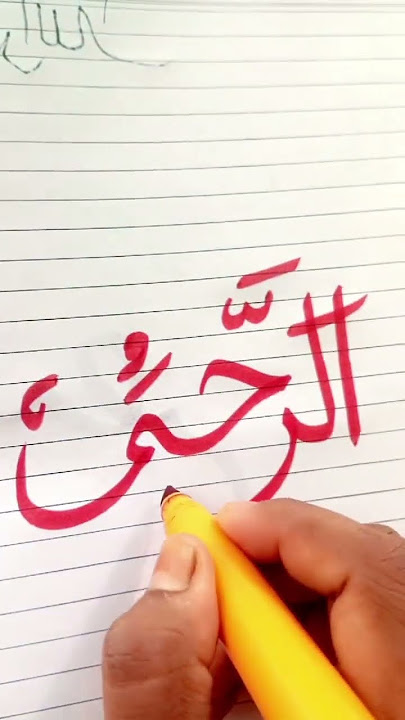 الرَّحْمَنُ